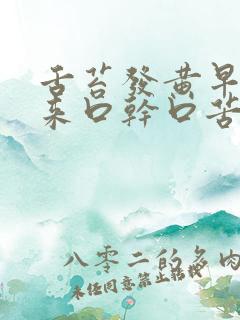 舌苔發黃早
來口幹口苦
八零二的多肉
未經同意禁止轉載